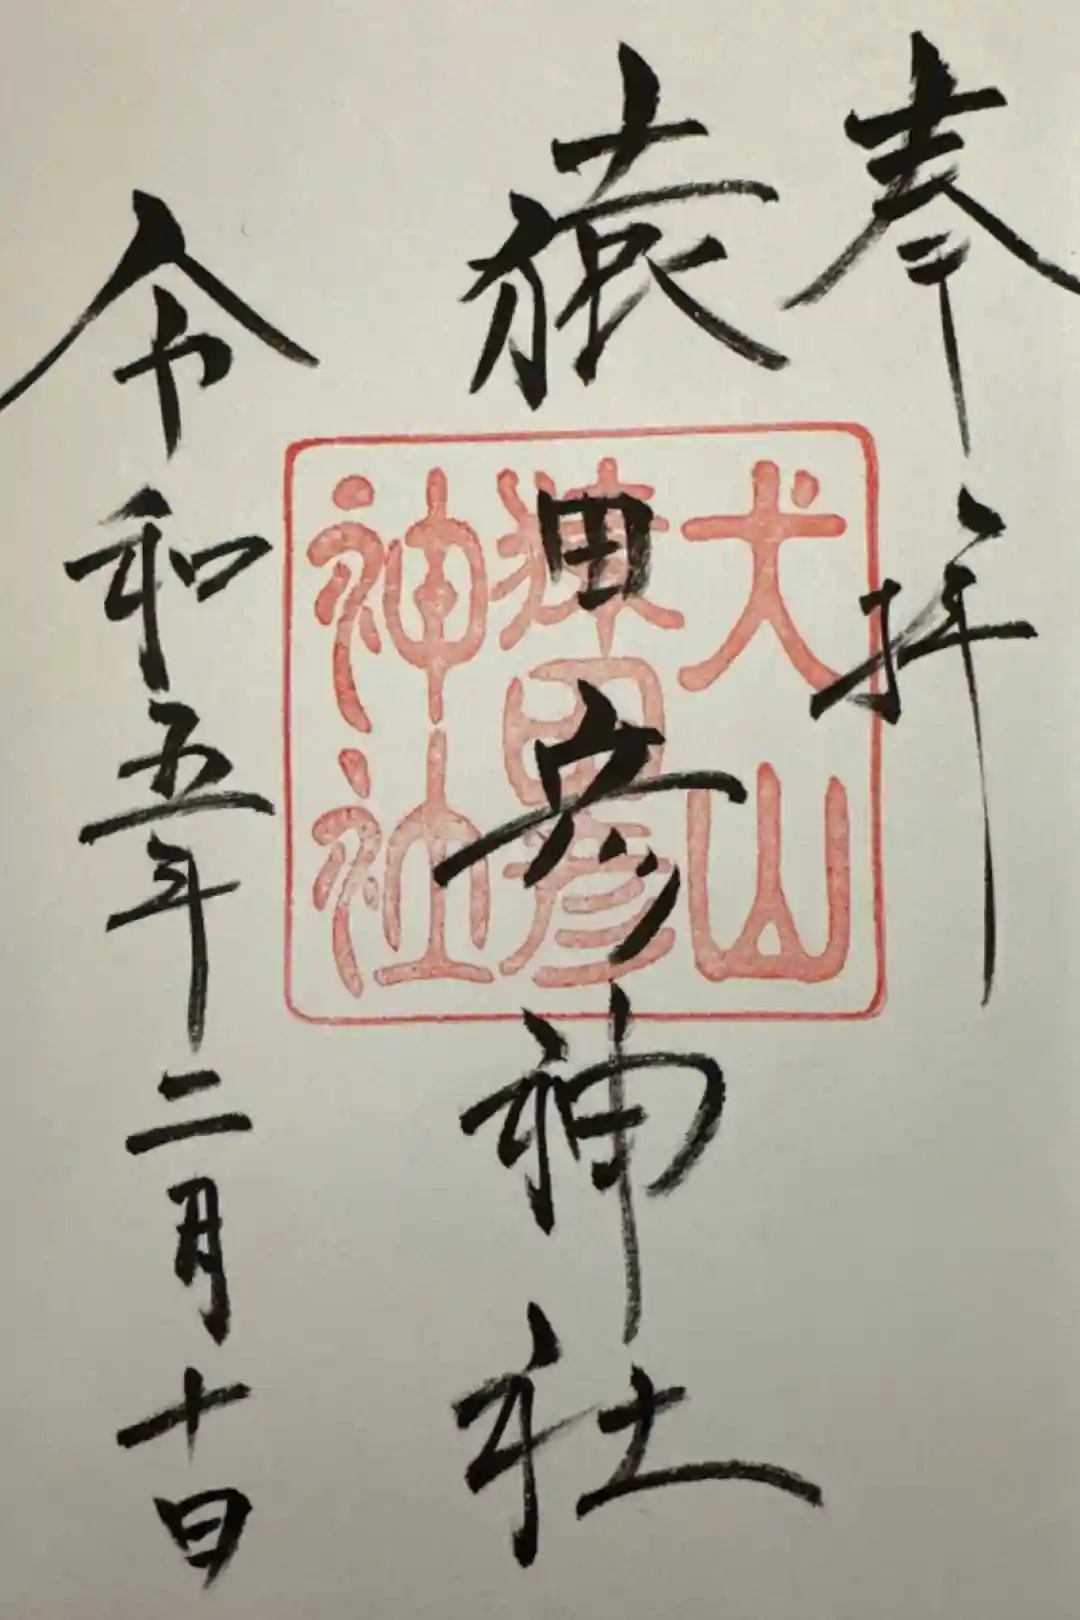 奉拝
猿田彦神社
令和五年二月十日
犬山
猿田彦
神社